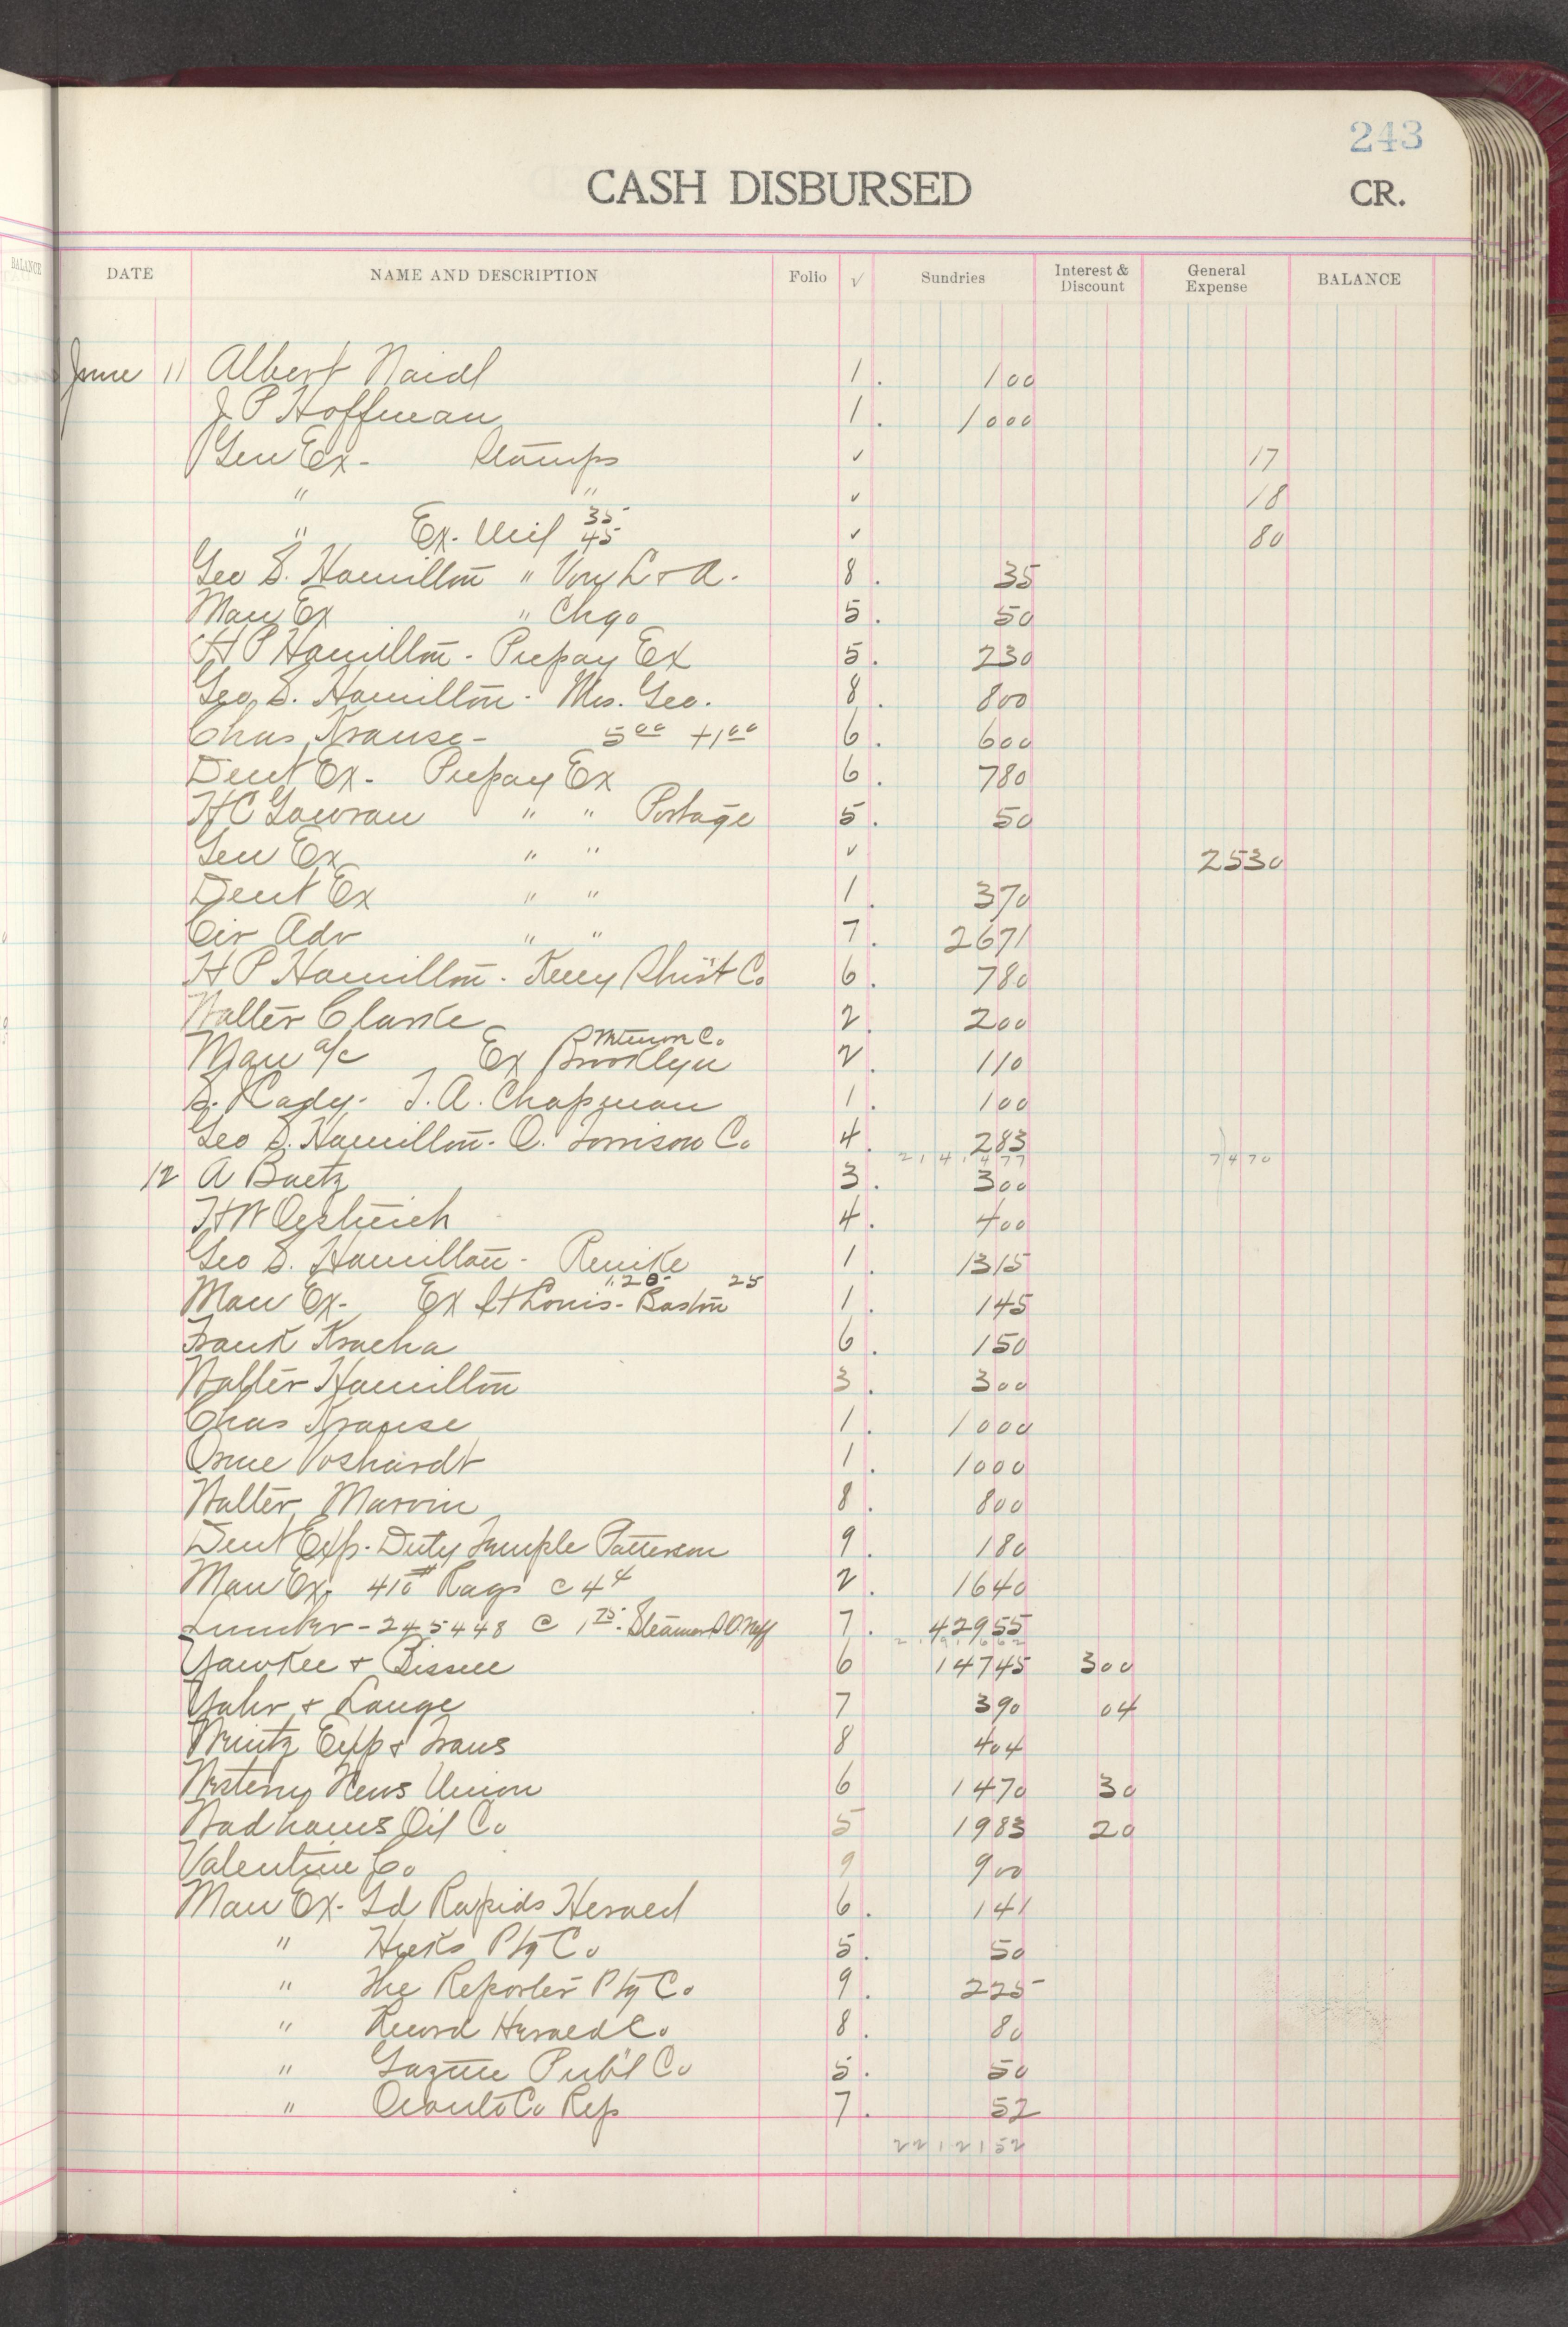 243
CASH DISBURSED CR.
BALANCE
DATE NAME AND DESCRIPTION Folio √ Sundries Interest & Discount General Expense BALANCE
June 11 Albert Naidl 1 . 100
J P Hoffman 1 . 1000
Gen Ex - Stamps ✓ 17
" " ✓ 18
" Ex. Mil 35 45 ✓ 80
Geo S. Hamilton " Von L & A. 8 . 35
Man Ex " Chgo 5 . 50
H P Hamilton - Prepay Ex 5 . 230
Geo S. Hamilton - Mrs. Geo. 8 . 800
Chas Krause - 5 00 + 1 00 6 . 600
Dent Ex - Prepay Ex 6 . 780
H C Gawran " " Portage 5 . 50
Gen Ex " " ✓ 2530
Dent Ex " " 1 . 370
Cir Adv " " 7 . 2671
H P Hamilton - Co 6 . 780
Walter Clarke 2 . 200
Man a/c Ex Brooklyn Co. 2 . 110
S. Kady - T. A. Chapman 1 . 100
Geo S. Hamilton - O. Torrison Co 4 . 283
21 41 477 7470
12 A Baetz 3 . 300
H W Oestreich 4 . 400
Geo S. Hamilton - Reuike 1 . 1315
Man Ex - Ex St Louis - 1.20 Boston 25 1 . 145
Frank Kracha 6 . 150
Walter Hamilton 3 . 300
Chas Krause 1 . 1000
Orme Voshardt 1 . 1000
Walter Marvin 8 . 800
Dent Exp - Duty Temple Patterson 9 . 180
Man Ex - 410# Rags c 4 4 2 . 1640
Lumber - 245448 @ 1 75 - Steamer S O. Neff 7 . 42955
Yawkee & Bissell 6 14745 300
Yahr & Lange 7 390 04
Wrintz Exp & Trans 8 404
Western News Union 6 1470 30
Wadhams Oil Co 5 1983 20
Valentine Co 9 900
Man Ex - Gd Rapids Herald 6 . 141
" Hicks Ptg Co 5 . 50
" The Reporter Ptg Co. 9 . 225
" Record Herald Co. 8 . 80
" Gazette Pub'l Co 5 . 50
" Oconto Co Rep 7 . 52
22 12 152